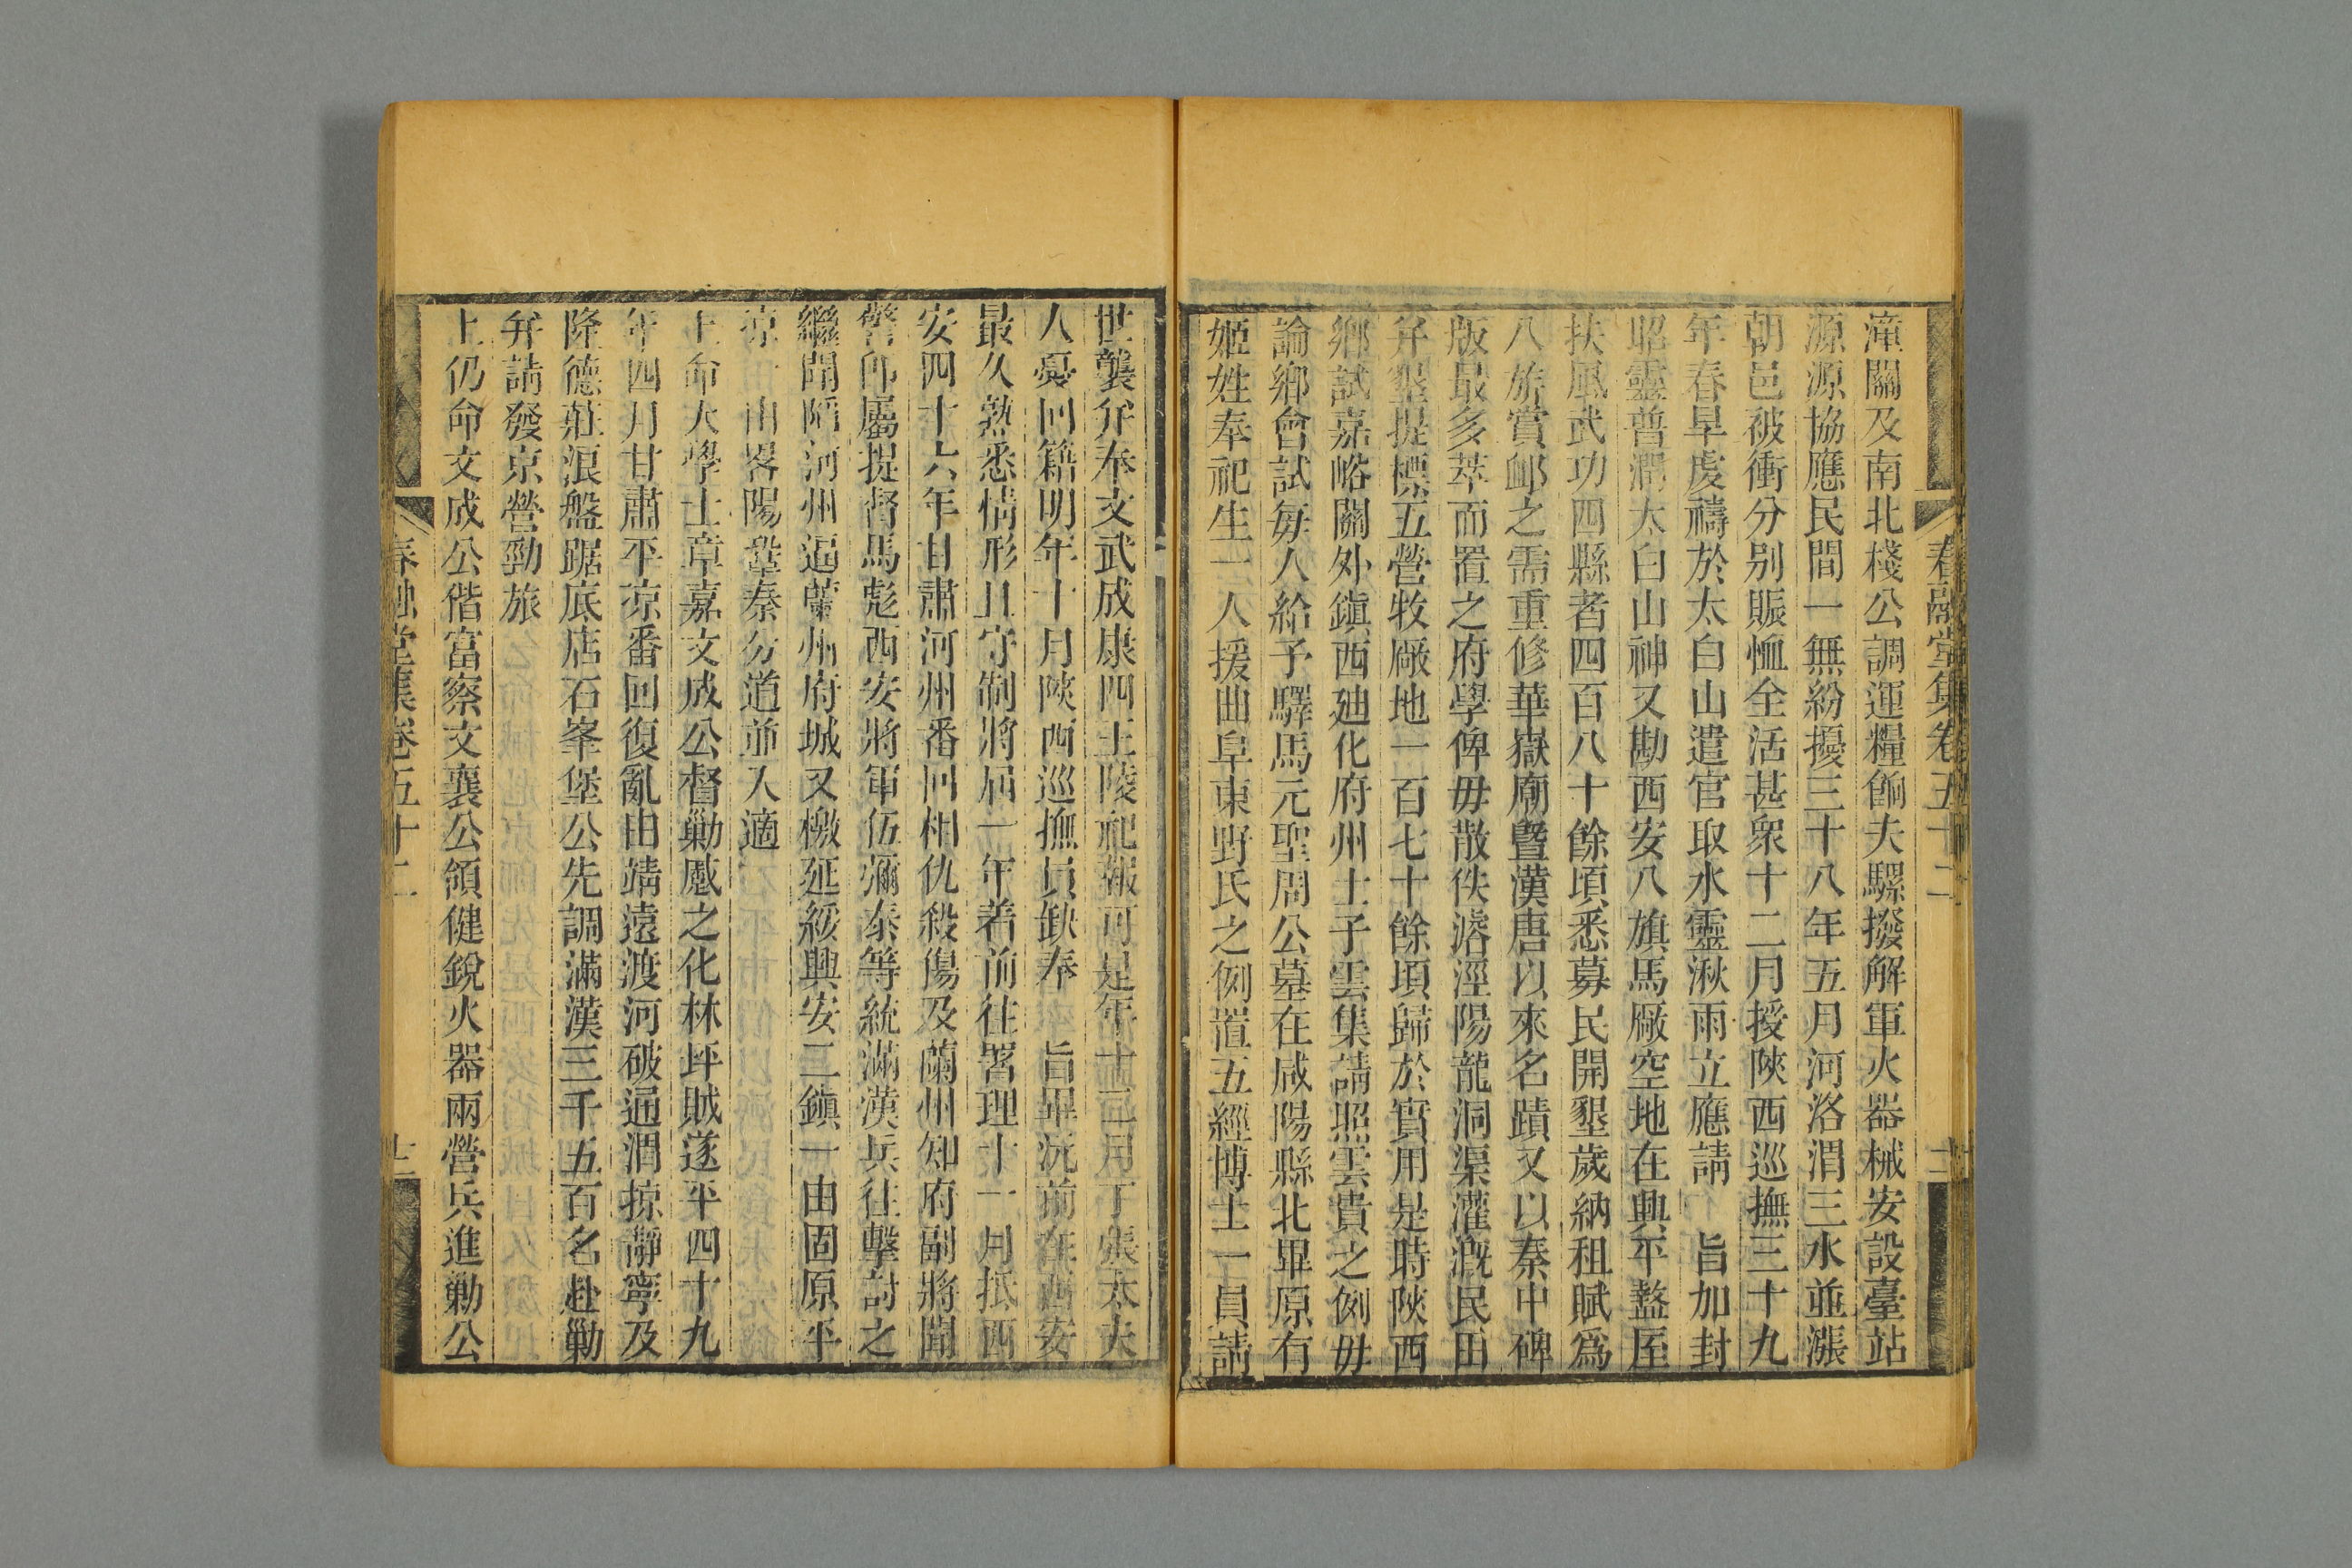 春融堂集卷五十二
潼關及南北棧公調運糧餉夫騾撥解軍火器械安設臺站
源源協應民間一無紛擾三十八年五月河洛渭三水並漲
朝邑被衝分别賑恤全活甚衆十二月授陝西巡撫三十九
年春旱虔禱於太白山遣官取水靈湫雨立應請 旨加封
昭靈普潤太白山神又勘西安八旗馬廠空地在興平盩厔
扶風武功四縣者四百八十餘頃悉募民開墾歲納租賦爲
八旂賞卹之需重修華嶽廟曁漢唐以來名蹟又以秦中碑
版最多萃而置之府學俾毋散佚濬涇陽龍洞渠灌溉民田
并墾提標五營牧廠地一百七十餘頃歸於實用是時陝西
鄉試嘉峪關外鎭西廸化府州士子雲集請照雲貴之例毋
論鄉會試每人給予驛馬元聖周公墓在咸陽縣北畢原有
姬姓奉祀生一人援曲阜東野氏之例置五經博士一員請
世襲弁奉文武成康四王陵祀報可是年十二月丁張太夫
人憂回籍明年十月陝西巡撫員缺奉 旨畢沅前在西安
最久熟悉情形且守制將屆一年着前往署理十一月抵西
安四十六年甘肅河州番回相仇殺傷及蘭州知府副將聞
警卽屬提督馬彪西安將軍伍彌泰等統滿漢兵往擊討之
繼聞陷河州逼蘭州府城又檄延綏興安二鎭一由固原平
凉一由畧陽鞏秦分道並入適
上命大學士章嘉文成公督勦蹙之化林坪賊遂平四十九
年四月甘肅平凉番回復亂由靖遠渡河破通渭掠靜寧及
隆德莊浪盤踞底店石峯堡公先調滿漢三千五百名赴勦
弁請發京營勁旅
上仍命文成公偕富察文襄公領健銳火器兩營兵進勦公
春融堂集卷五十二